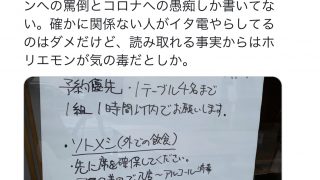 ンへの罵倒とコロナへの愚痴しか書いてな
い。確かに関係ない人がイタ電やらしてる
のはダメだけど、読み取れる事実からはホ
リエモンが気の毒だとしか。
予約優先・1テーブル4名まで
1組 1時間以内でお願いします。
ソトメシ(外での飲食)
・先に席を確保してください。